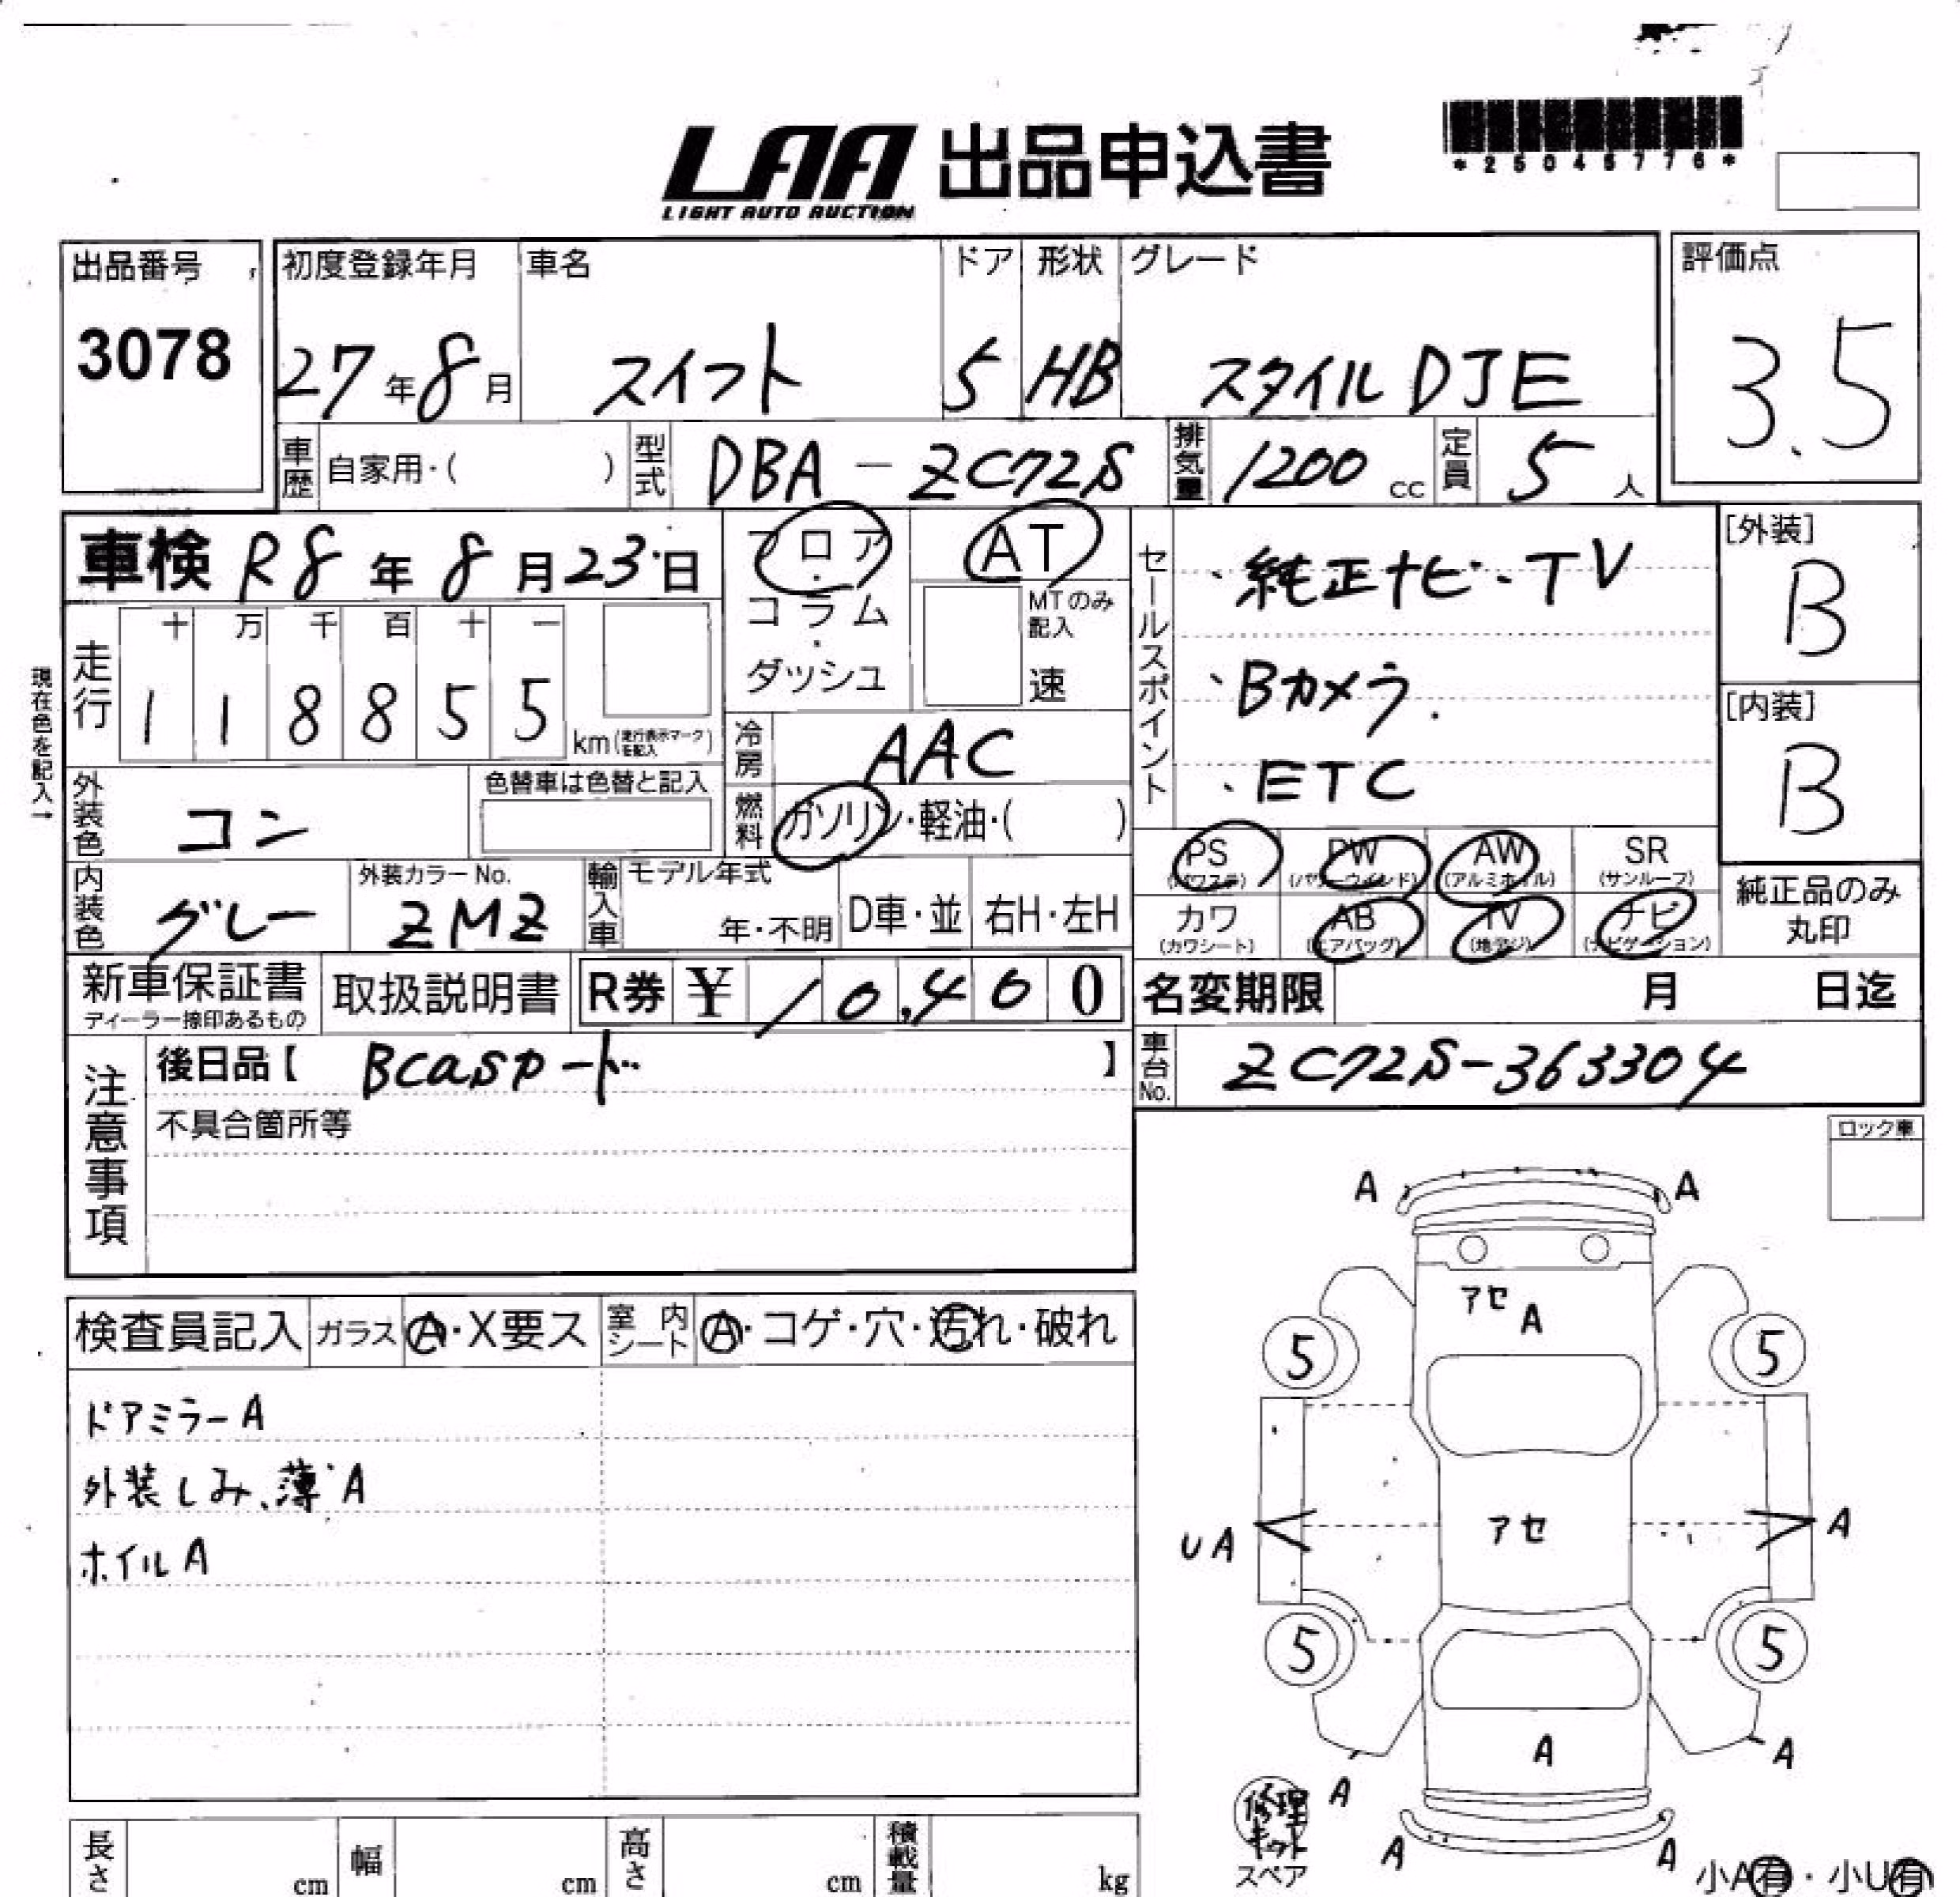 LAA 出品申込書
LIGHT AUTO AUCTION
*25045776*
出品番号
3078
初度登録年月
27年8月
車名
スイフト
ドア
5
形状
HB
グレード
スタイルDJE
評価点
3.5
車歴
自家用・( )
型式
DBA-ZC72S
排気量
1200 cc
定員
5 人
車検 R8年8月23日
フロア・コラム・ダッシュ
AT
MTのみ記入
速
セールスポイント
・純正ナビ・TV
・Bカメラ.
・ETC
[外装]
B
[内装]
B
現在色を記入→
走行
十 万 千 百 十 一
1 1 8 8 5 5
km(走行表示マークを記入)
冷房
AAC
外装色
コン
色替車は色替と記入
燃料
ガソリン・軽油・( )
PS
(パワステ)
PW
(パワーウインド)
AW
(アルミホイル)
SR
(サンルーフ)
カワ
(カワシート)
AB
(エアバッグ)
TV
(地デジ)
ナビ
(ナビゲーション)
純正品のみ
丸印
内装色
グレー
外装カラーNo.
ZMZ
輸入車
モデル年式
年・不明
D車・並
右H・左H
新車保証書
ディーラー捺印あるもの
取扱説明書
R券 ¥ 10,460
名変期限 月 日迄
注意事項
後日品【 Bcasカード 】
不具合箇所等
車台No.
ZC72S-363304
ロック車
検査員記入
ガラス
A・X要ス
室内シート
A・コゲ・穴・汚れ・破れ
ドアミラーA
外装しみ、薄A
ホイルA
A
A
アセ
A
5
5
UA
アセ
A
5
5
A
A
A
A
A
修理キット
スペア
小A有・小U有
長さ cm
幅 cm
高さ cm
積載量 kg